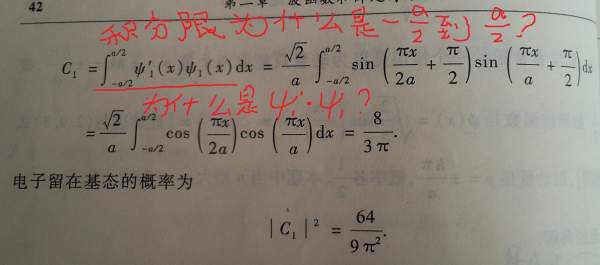 42 第二章
积分限为什么是-a/2到a/2?
C₁ = ∫_{-a/2}^{a/2} ψ′₁(x)ψ₁(x)dx = √2/a ∫_{-a/2}^{a/2} sin(πx/2a + π/2) sin(πx/a + π/2)dx
为什么是ψ₁′·ψ₁?
= √2/a ∫_{-a/2}^{a/2} cos(πx/2a) cos(πx/a) dx = 8/3π.
电子留在基态的概率为
|C₁|² = 64/9π².